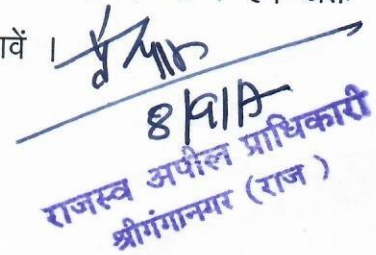 ावें ।
8/9/17
राजस्व अपील प्राधिकारी
श्रीगंगानगर (राज )